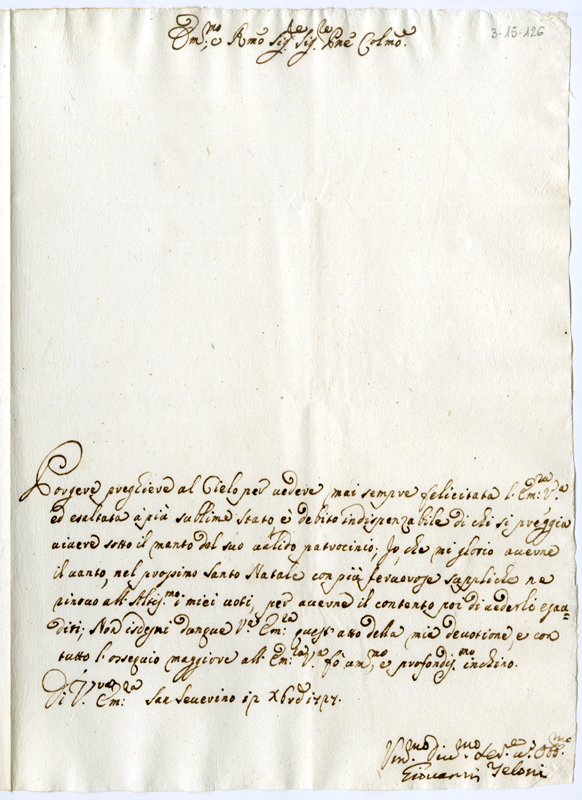 Em:mo e Rmo Sig:re Sig:re Pne Colmo.
3-15-126
Porgere preghiere al Cielo per uedere mai sempre felicitata l'Em:za V:ra
ed esaltata à più sublime stato è debito indispenzabile di chi si preggia
uiuere sotto il manto del suo ualido patrocinio; Io, che mi glorio auerne
il uanto, nel prossimo Santo Natale con più feruorose suppliche ne
rinouo all'Altis:mo i miei uoti, per auerne il contento poi di uederli esau=
diti; Non isdegni dunque V:ra Em:za quest'atto della mia deuotione, e con
tutto l'ossequio maggiore all'Em:za V:ra fò um:mo, e profondis:mo inchino.
Di V:ra Em:za San Seuerino 12 Xbre 1727.
Um:mo Diu:mo Se:re Obb:mo
Giouanni Teloni